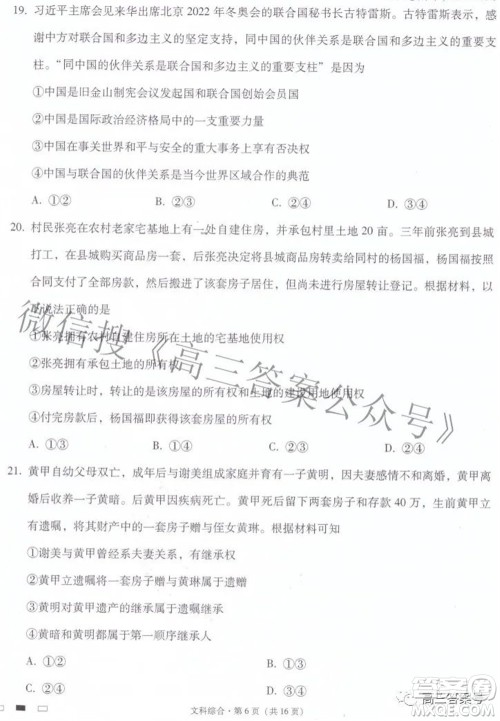 19. 习近平主席会见来华出席北京 2022 年冬奥会的联合国秘书长古特雷斯。古特雷斯表示，感
谢中方对联合国和多边主义的坚定支持，同中国的伙伴关系是联合国和多边主义的重要支
柱。“同中国的伙伴关系是联合国和多边主义的重要支柱”是因为
①中国是旧金山制宪会议发起国和联合国创始会员国
②中国是国际政治经济格局中的一支重要力量
③中国在事关世界和平与安全的联合国事务中享有否决权
④中国与联合国的伙伴关系是当今世界区域合作的典范
A. ①② B. ②③ C. ①④ D. ③④
20. 村民张亮在农村老家宅基地上有一处自建住房，并承包村里土地 20 亩。三年前张亮到县城
打工，在县城购买商品房一套，后张亮将县城商品房转卖给同村的杨国福，杨国福按照
合同支付了全部房款，然后搬进了该套房子居住，但尚未进行房屋转让登记。根据材料，以
下说法正确的是
①张亮拥有农村自建住房所在土地的宅基地使用权
②张亮拥有承包土地的所有权
③房屋转让时，转让的是该房屋的所有权和土地的建设用地使用权
④付完房款后，杨国福即获得该套房屋的所有权
A. ①② B. ①③ C. ②④ D. ③④
21. 黄甲自幼父母双亡，成年后与谢美组成家庭并育有一子黄明，因夫妻感情不和离婚，黄甲离
婚后收养一子黄暗。后黄甲因疾病死亡。黄甲留下两套房子和存款 40 万，生前黄甲立
有遗嘱，将其财产中的一套房子赠与侄女黄琳。根据材料可知
①谢美与黄甲曾经系夫妻关系，有继承权
②黄甲立遗嘱将一套房子赠与黄琳属于遗赠
③黄明对黄甲遗产的继承属于遗嘱继承
④黄暗和黄明都属于第一顺序继承人
A. ①② B. ①③
C. ②④ D. ③④
文科综合·第 6 页（共 16 页）
微信搜《高三答案公众号》
高三答案号
MXQE.COM